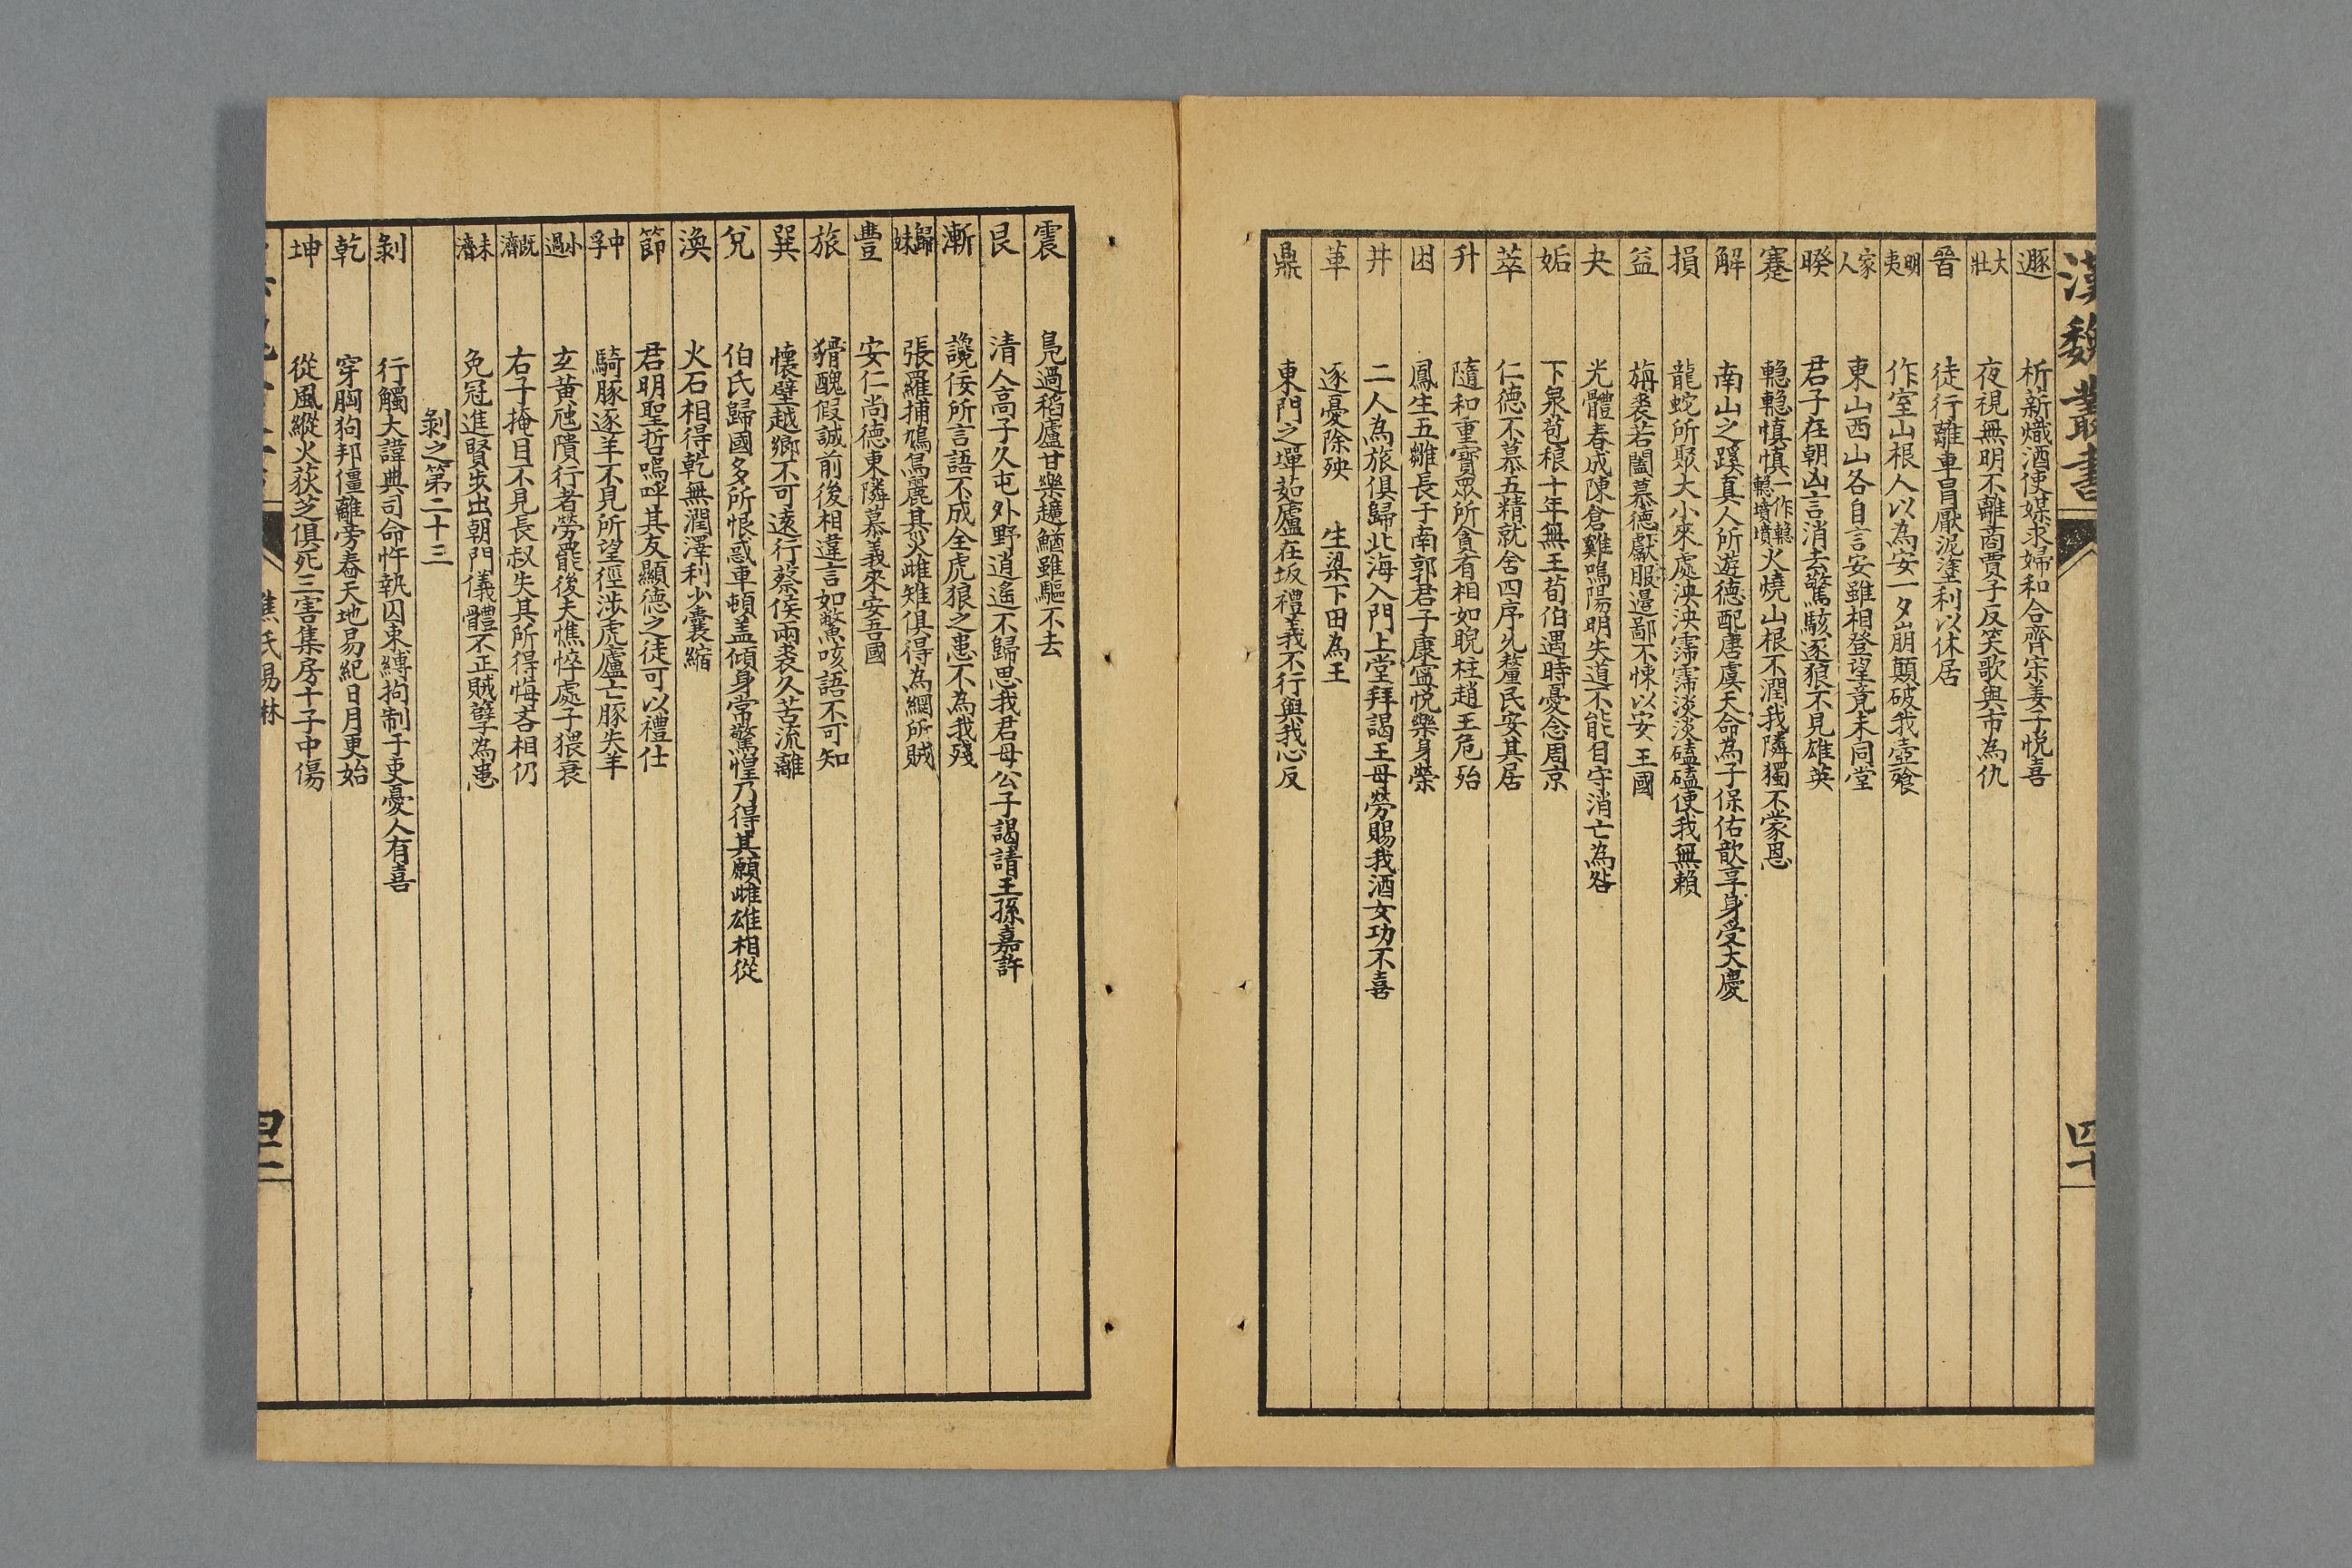 漢魏叢書
四十
遯 析新熾酒使媒求婦和合齊宋姜子悅喜
大壯 夜視無明不離商賈子反笑歌與市為仇
晉 徒行離車冒厭泥塗利以休居
明夷 作室山根人以為安一夕崩顛破我壺飱
家人 東山西山各自言安雖相登望竟未同堂
睽 君子在朝凶言消去驚駭逐狼不見雄英
蹇 轀轀慎慎一作轀轀墳墳火燒山根不潤我隣獨不蒙恩
解 南山之蹊真人所遊德配唐虞天命為子保佑歆享身受大慶
損 龍蛇所聚大小來處泱泱霈霈淡淡磕磕使我無賴
益 旃裘若闔慕德獻服邊鄙不悚以安王國
夬 光體春成陳倉雞鳴陽明失道不能自守消亡為咎
姤 下泉苞稂十年無王荀伯遇時憂念周京
萃 仁德不慕五精就舍四序允釐民安其居
升 隨和重寶眾所貪有相如睨柱趙王危殆
困 鳳生五雛長于南郭君子康寧悅樂身榮
井 二人為旅俱歸北海入門上堂拜謁王母勞賜我酒女功不喜
革 逐憂除殃 生梁下田為王
鼎 東門之墠茹廬在坂禮義不行與我心反
震 鳧過稻廬甘樂䵚鰌雖驅不去
艮 清人高子久屯外野逍遙不歸思我君母公子謁請王孫嘉許
漸 讒佞所言語不成全虎狼之患不為我殘
歸妹 張羅捕鳩鳥麗其災雌雉俱得為網所賊
豐 安仁尚德東隣慕義來安吾國
旅 猾醜假誠前後相違言如鱉咳語不可知
巽 懷璧越鄉不可遠行蔡侯兩裘久苦流離
兌 伯氏歸國多所恨惑車頓盖傾身常驚惶乃得其願雌雄相從
渙 火石相得乾無潤澤利少囊縮
節 君明聖哲嗚呼其友顯德之徒可以禮仕
中孚 騎豚逐羊不見所望徑涉虎廬亡豚失羊
小過 玄黃虺隤行者勞罷後夫憔悴處子猥衰
既濟 右子掩目不見長叔失其所得悔吝相仍
未濟 免冠進賢步出朝門儀體不正賊孽為患
剝之第二十三
剝 行觸大諱與司命忤執囚束縛拘制于吏憂人有喜
乾 穿胸狗邦僵離旁春天地易紀日月更始
坤 從風縱火荻芝俱死三害集房十子中傷
焦氏易林
四十一